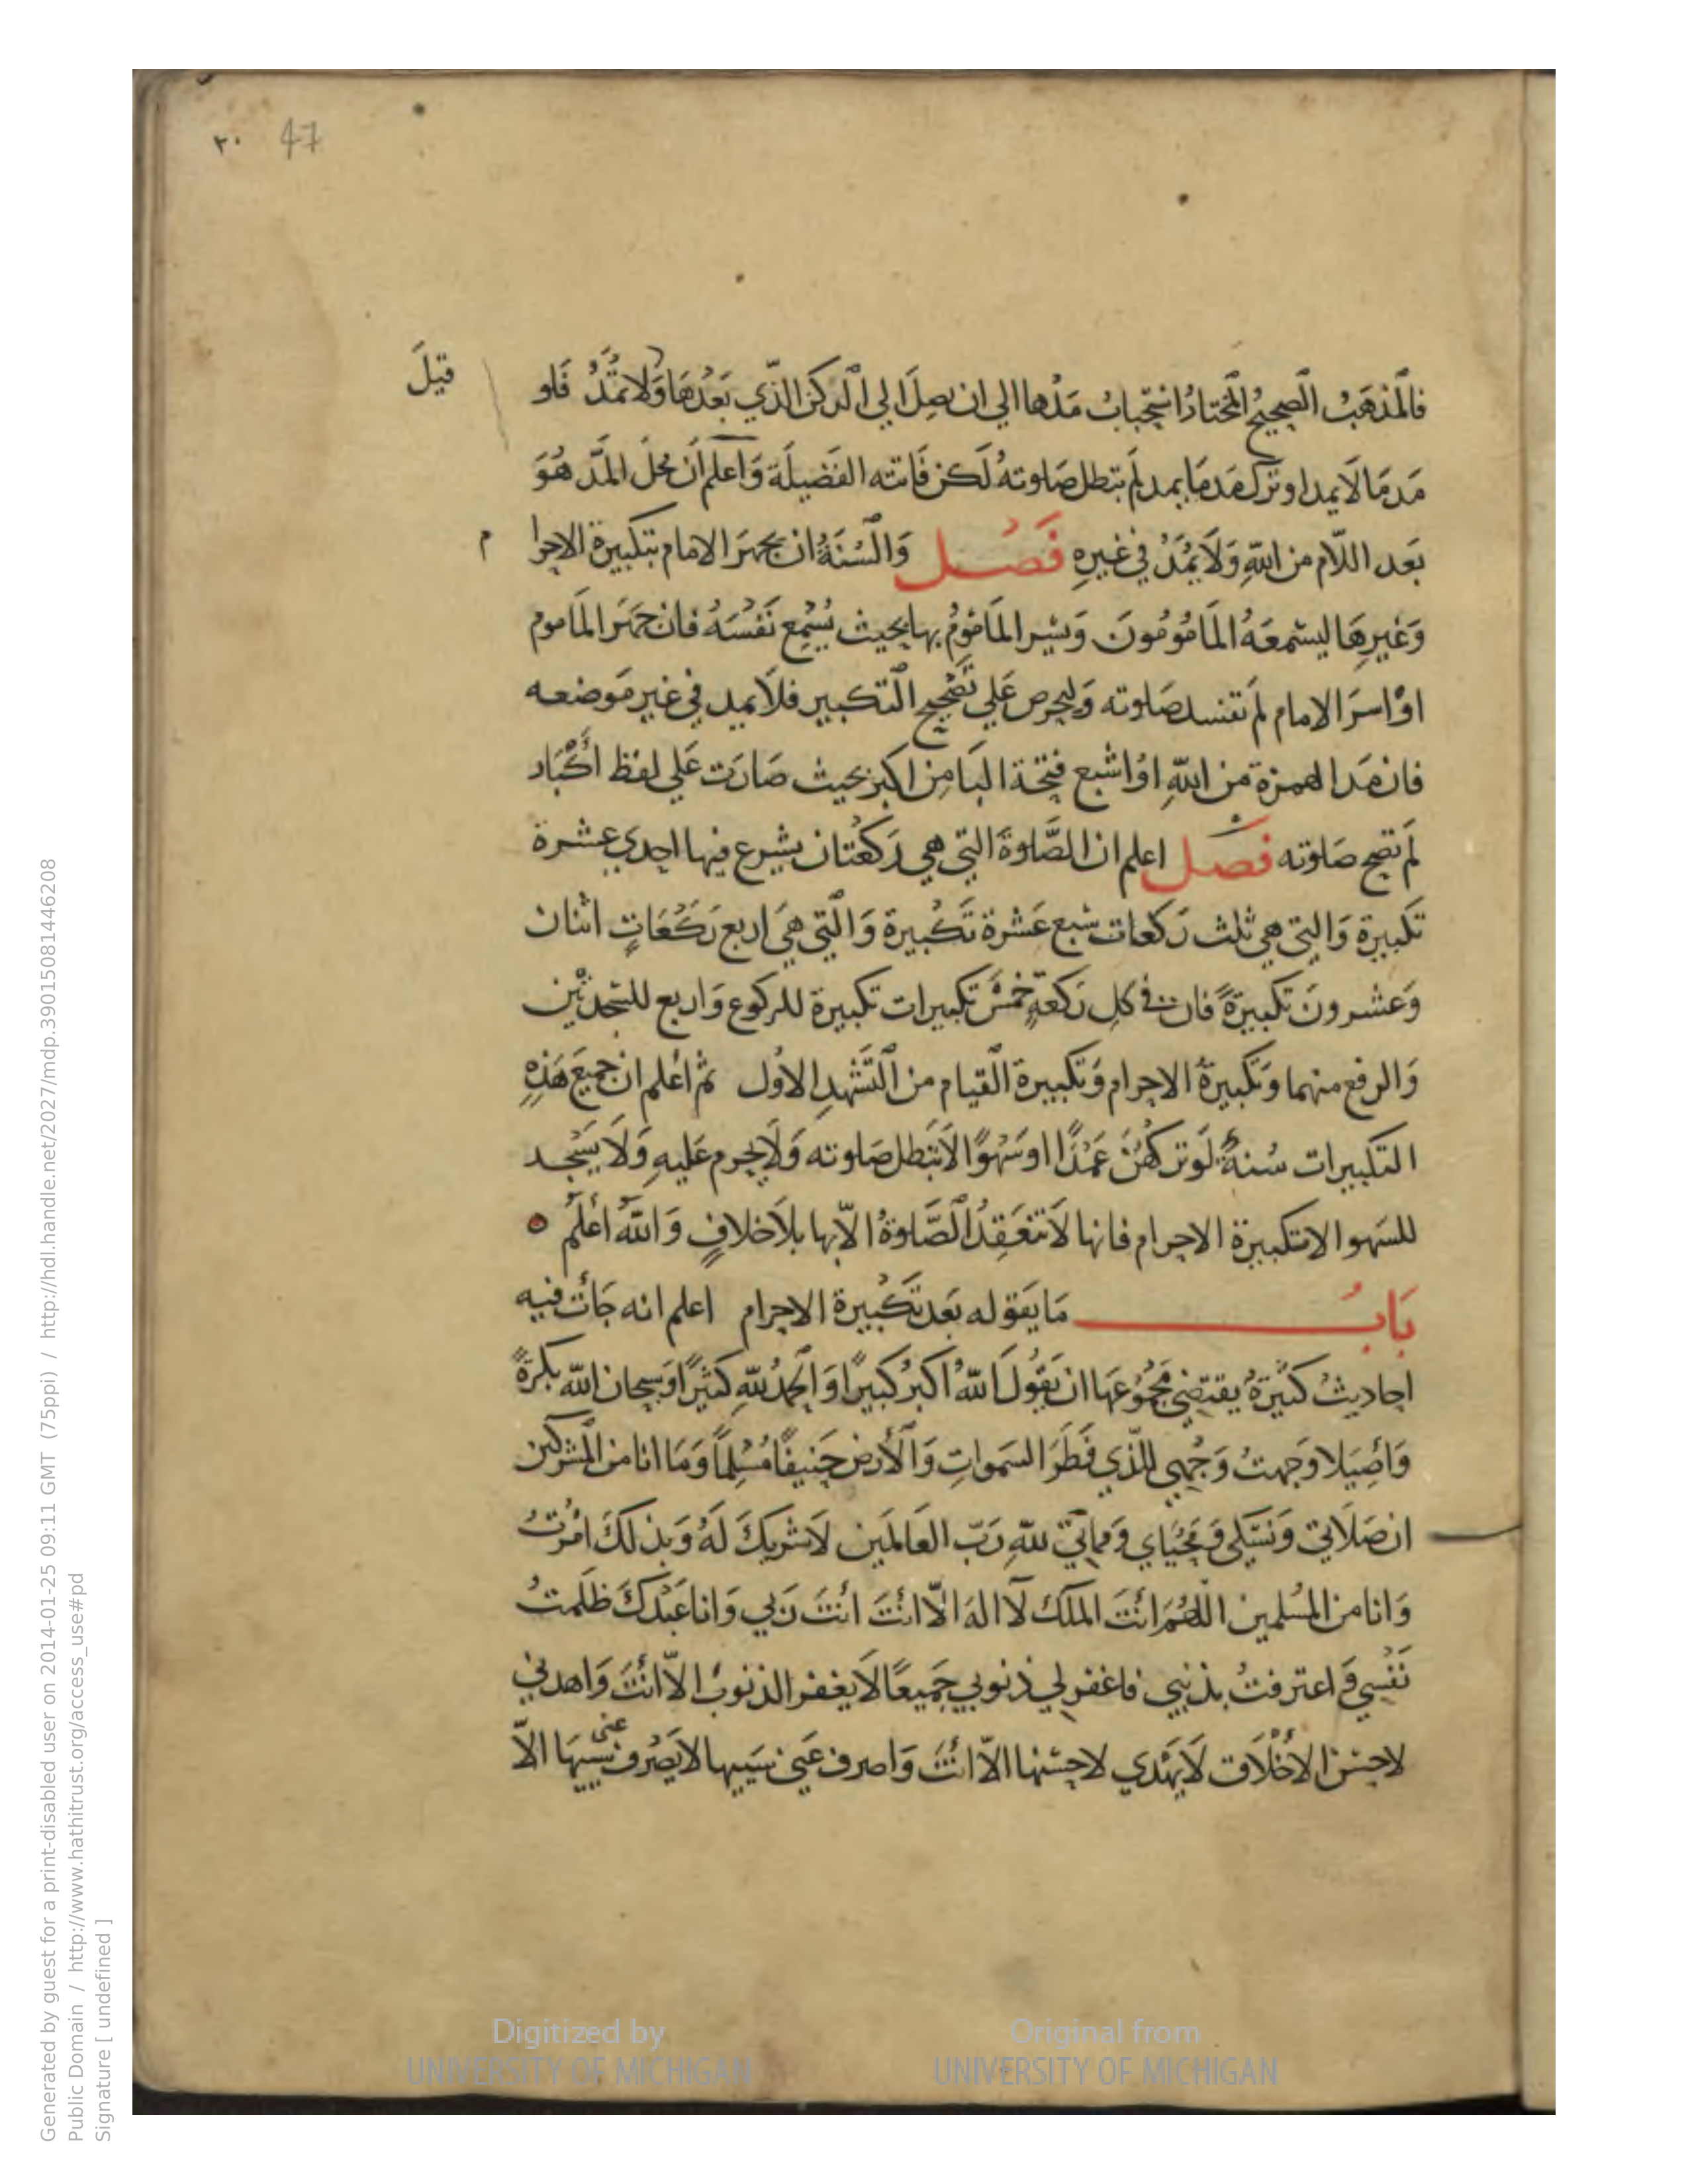 ٣٠ 47
قيلَ
فالمَذهَبُ الصحيحُ المختارُ استحبابُ مَدْها الي ان يصِلَ الي الركن الذّي بَعْدهَا وَلا تمُدّ فلو
مَدمَا لَا يمد او ترك مَدمَا يمد لم تبطل صَلوته لَكن فَاتته الفضيلَة وَاعلم اَن محلَ المَدّ هُوَ
بَعد اللّام من اللهِ وَلَا يمُدّ في غيرِهِ فَصْل وَالسُنَةُ ان يجهَر الامام بتكبيرة الاحرا
م
وَغيرِهَا ليسْمعَهُ المَامُومُونَ وَيسر المَامُومُ بها بحيث يُسْمِع نَفْسَهُ فان جَهَر المَاموم
اوْ اسرَ الامام لم تفسد صَلوته وَليحرص عَلي تَصْحِيحِ التكبير فلَا يمد في غير مَوضعه
فان مَدا الهمزة من اللهِ اوْ اشبع فتحة البَا مِن اكبر بحيث صَارَت عَلي لفظ اكْبَار
لَم تصح صَلوته فصل اعلم ان الصَّلوةَ التي هي رَكعْتان يشرع فيها احدي عشرة
تكبيرة وَالتي هي ثلث رَكعات سَبع عَشْرة تَكْبيرة وَالّتي هيَ اربع رَكَعَاتٍ اثنان
وَعشرونَ تكبيرَةً فان في كلِ رَكعةٍ خمسُ تكبيرات تكبيرة للركوع وَاربع للسَجدتيْن
وَالرفع منهما وَتكبيرةُ الاحرام وَتكبيرة القيام من التَشهدِ الاوُل ثم اعْلم ان جميعَ هَذِهِ
التكبيرات سُنةٌ لَو تركهُنَ عَمْدًا او سَهْوًا لَا تبَطل صَلوته وَلَا يحرم عَليهِ وَلَا يَسْجد
للسَهو الا تكبيرة الاحرام فانها لَا تنعَقِدُ الصَّلوةُ الّا بها بلَا خلافٍ وَاللهُ اعْلَمُ
بَابُ مَا يَقوله بَعد تَكْبيرة الاحرام اعلم انه جَاْت فيه
احاديثُ كثيَرةُ يقتضي مَجْمُوعَهَا ان يَقُولَ اَللهُ اكبرُ كبيرًا وَالحمْدُ للهِ كثيرًا وَسبحان الله بكرةً
وَاَصِيَلا وجَهتُ وَجْهِي للّذي فَطَرَ السَموَاتِ وَالْأرض حَنِيفًا مُسْلِمًا وَمَا انا من المُشركين
ان صَلَاتي وَنسُكي وَمَحْيَاي وَمماتي للهِ رَبّ العَالمَين لَا شرَيكَ لَهُ وَبذلكَ امُرْتُ
وَانا من المُسْلمين اللهُمَ انْتَ الملك لَا اله الّا انْتَ انْتَ رَبي وَانا عَبْدكَ ظَلَمتُ
نَفْسِي وَاعترفتُ بذنبي فاغفر لي ذنوبي جَميعًا لَا يغفر الذنوبُ الّا انْتَ وَاهدني
لاحسَن الاخْلَاق لَا يَهْدي لاحسَنها الّا انْتَ وَاصرف عَني سَييها لا يَصْرف عنى سَيّيهَا الّا
Digitized by
UNIVERSITY OF MICHIGAN
Original from
UNIVERSITY OF MICHIGAN
Generated by guest for a print-disabled user on 2014-01-25 09:11 GMT (75ppi) / http://hdl.handle.net/2027/mdp.39015081446208
Public Domain / http://www.hathitrust.org/access_use#pd
Signature [ undefined ]